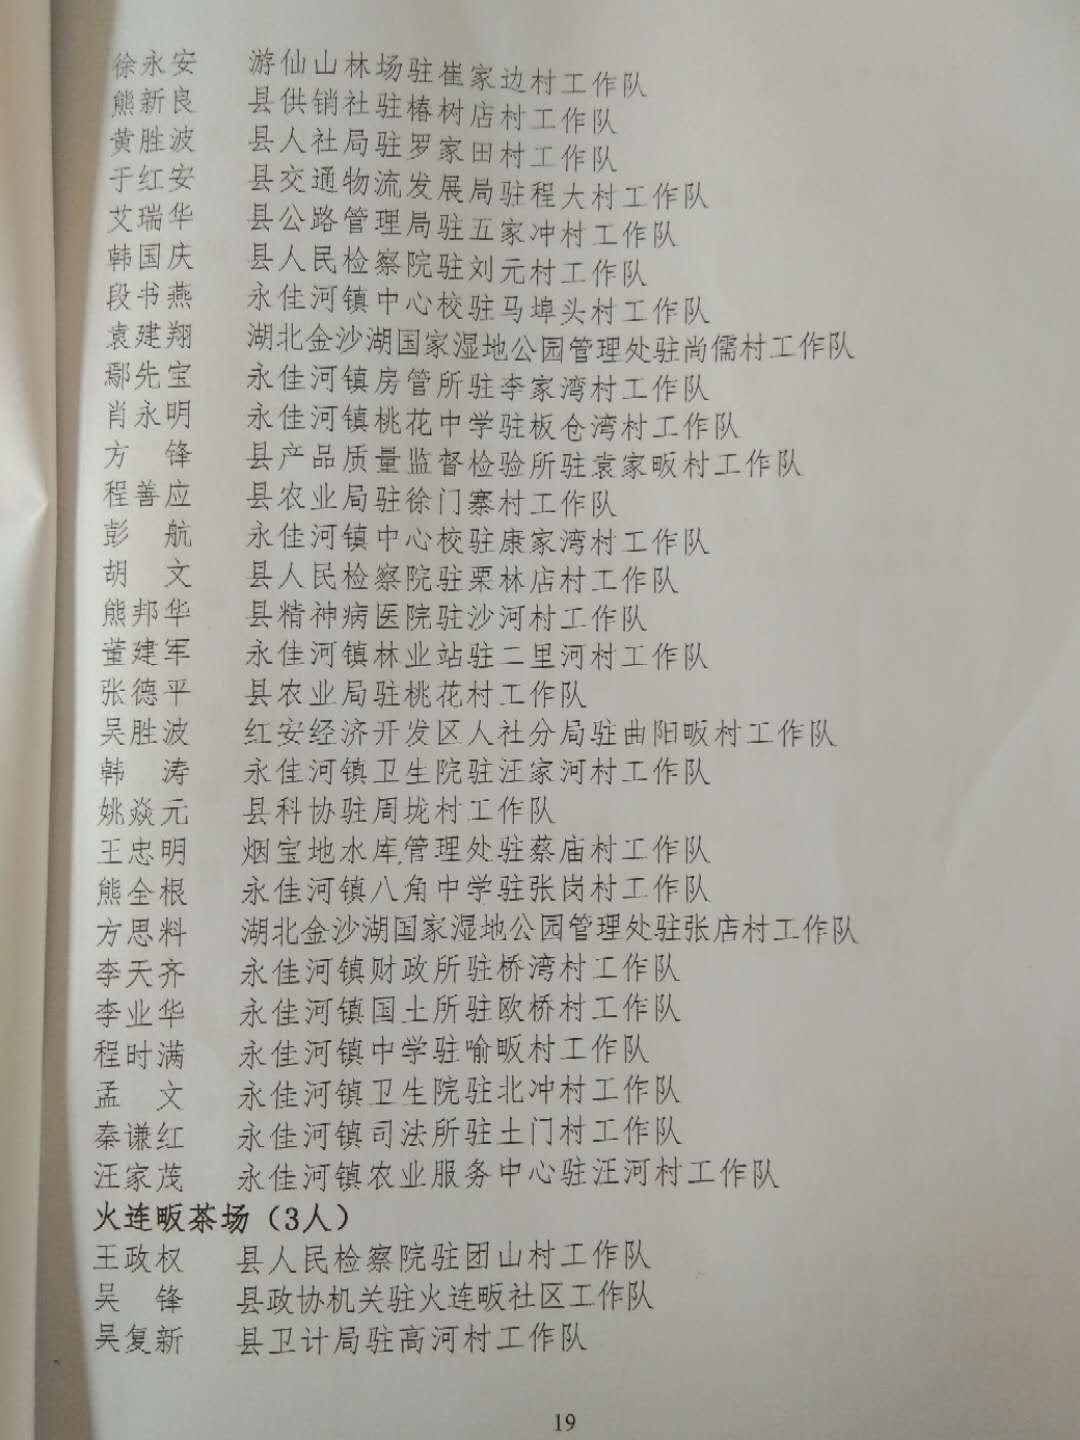 徐永安 游仙山林场驻崔家边村工作队
熊新良 县供销社驻椿树店村工作队
黄胜波 县人社局驻罗家田村工作队
于红安 县交通物流发展局驻程大村工作队
艾瑞华 县公路管理局驻五家冲村工作队
韩国庆 县人民检察院驻刘元村工作队
段书燕 永佳河镇中心校驻马埠头村工作队
袁建翔 湖北金沙湖国家湿地公园管理处驻尚儒村工作队
鄢先宝 永佳河镇房管所驻李家湾村工作队
肖永明 永佳河镇桃花中学驻板仓湾村工作队
方 锋 县产品质量监督检验所驻袁家畈村工作队
程善应 县农业局驻徐门寨村工作队
彭 航 永佳河镇中心校驻康家湾村工作队
胡 文 县人民检察院驻栗林店村工作队
熊邦华 县精神病医院驻沙河村工作队
董建军 永佳河镇林业站驻二里河村工作队
张德平 县农业局驻桃花村工作队
吴胜波 红安经济开发区人社分局驻曲阳畈村工作队
韩 涛 永佳河镇卫生院驻汪家河村工作队
姚焱元 县科协驻周垅村工作队
王忠明 烟宝地水库管理处驻蔡庙村工作队
熊全根 永佳河镇八角中学驻张岗村工作队
方思料 湖北金沙湖国家湿地公园管理处驻张店村工作队
李天齐 永佳河镇财政所驻桥湾村工作队
李业华 永佳河镇国土所驻欧桥村工作队
程时满 永佳河镇中学驻喻畈村工作队
孟 文 永佳河镇卫生院驻北冲村工作队
秦谦红 永佳河镇司法所驻土门村工作队
汪家茂 永佳河镇农业服务中心驻汪河村工作队
火连畈茶场（3人）
王政权 县人民检察院驻团山村工作队
吴 锋 县政协机关驻火连畈社区工作队
吴复新 县卫计局驻高河村工作队
19